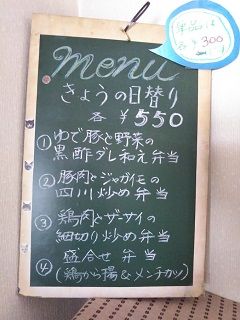 menu
きょうの日替り
各 ¥550
①ゆで豚と野菜の
黒酢ダレ和え弁当
②豚肉とジャガイモの
四川炒め弁当
③鶏肉とザーサイの
細切り炒め弁当
④盛合せ弁当
(鶏から揚&メンチカツ)
単品は
各¥300